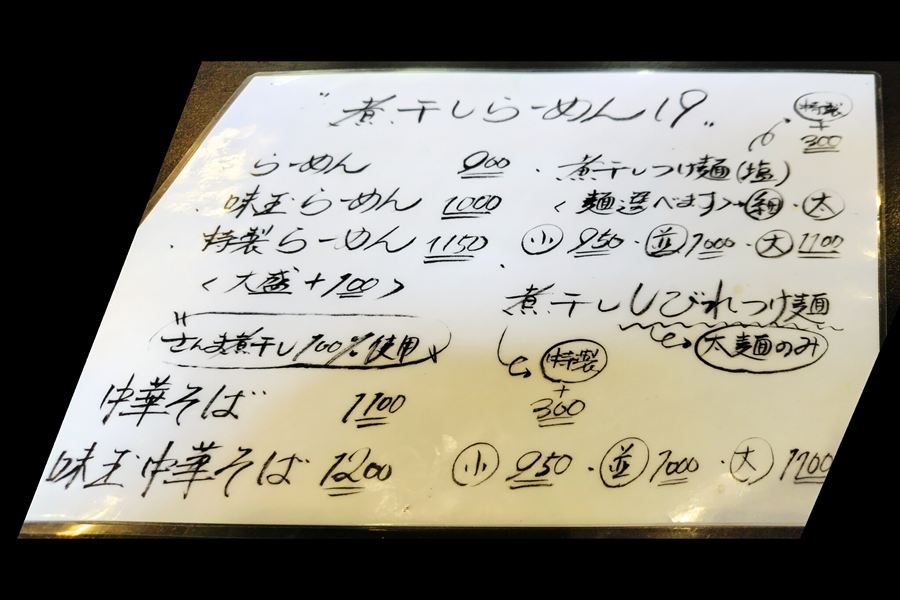 "煮干しらーめん19"
らーめん 900
味玉らーめん 1000
特製らーめん 1150
<大盛+100>
"さんま煮干し100%使用"
中華そば 1100
味玉中華そば 1200
特製
+
300
・煮干しつけ麺(塩)
<麺選べます>→細・太
小 950・並 1000・大 1100
・煮干ししびれつけ麺
太麺のみ
特製
+
300
小 950・並 1000・大 1100